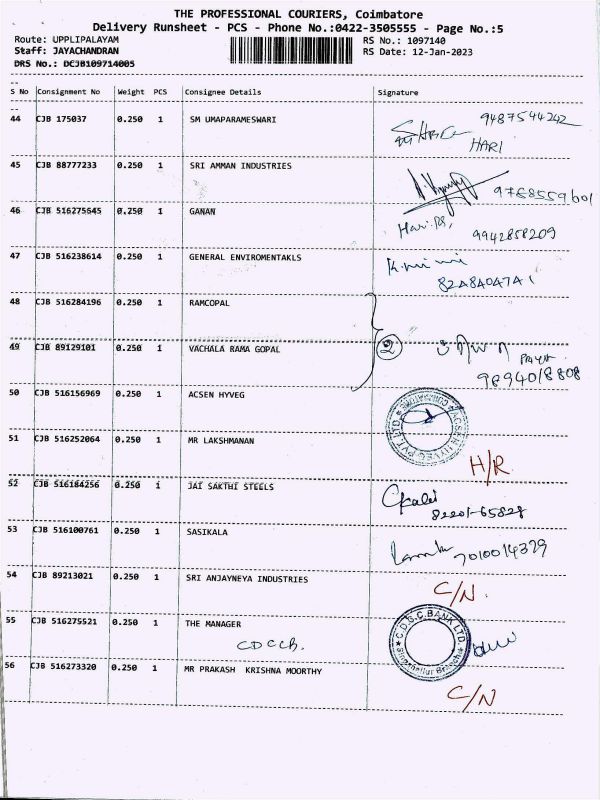 THE PROFESSIONAL COURIERS, Coimbatore
Delivery Runsheet - PCS - Phone No.:0422-3505555 - Page No.:5
Route: UPPLIPALAYAM RS No.: 1097140
Staff: JAYACHANDRAN RS Date: 12-Jan-2023
DRS No.: DCJB109714005
S No Consignment No Weight PCS Consignee Details Signature
44 CJB 175037 0.250 1 SM UMAPARAMESWARI 9487544242
HARI
45 CJB 88777233 0.250 1 SRI AMMAN INDUSTRIES 9768559601
46 CJB 516275645 0.250 1 GANAN
9942858209
47 CJB 516238614 0.250 1 GENERAL ENVIROMENTAKLS
8248404741
48 CJB 516284196 0.250 1 RAMCOPAL
49 CJB 89129101 0.250 1 VACHALA RAMA GOPAL 2
9894018808
50 CJB 516156969 0.250 1 ACSEN HYVEG ACSEN HYVEG PVT. LTD. COIMBATORE
51 CJB 516252064 0.250 1 MR LAKSHMANAN H/R
52 CJB 516184256 0.250 1 JAI SAKTHI STEELS
82201-65828
53 CJB 516100761 0.250 1 SASIKALA
7010014329
54 CJB 89213021 0.250 1 SRI ANJAYNEYA INDUSTRIES C/N.
55 CJB 516275521 0.250 1 THE MANAGER C.D.C.C. BANK LTD.
CDCCB.
56 CJB 516273320 0.250 1 MR PRAKASH KRISHNA MOORTHY C/N